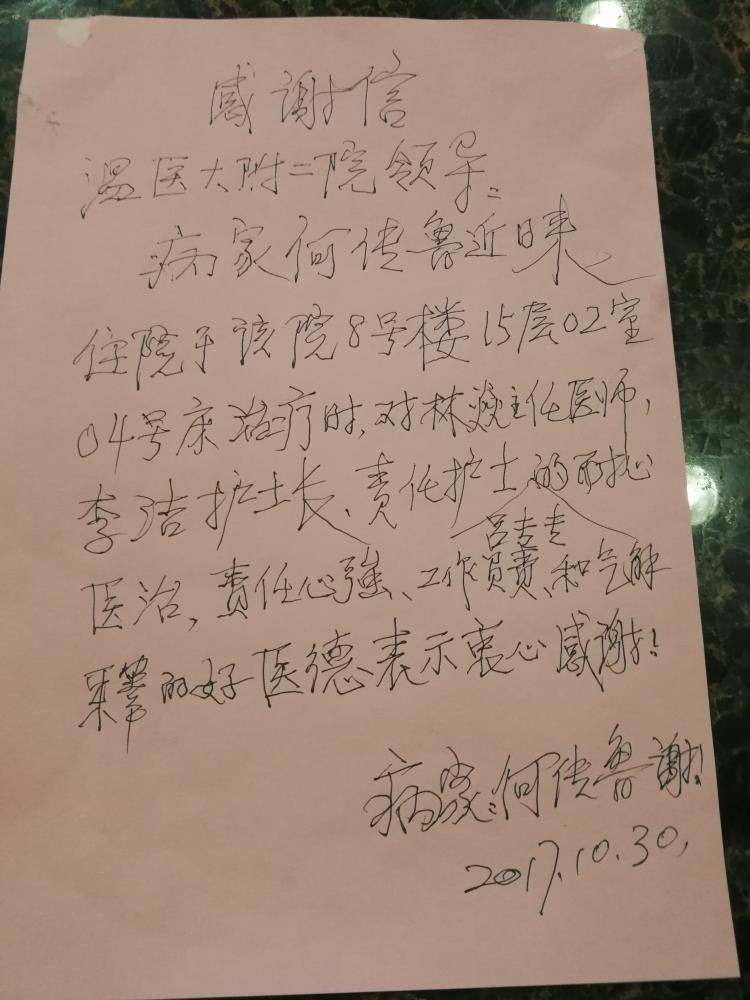 感谢信
温医大附二院领导:
病家何传鲁近日来
住院于该院8号楼15层02室
04号床治疗时,对林焱主任医师,
李洁护士长、责任护士的耐心
吕专专
医治,责任心强、工作负责、和气解
释等的好医德表示衷心感谢!
病家:何传鲁谢!
2017.10.30.